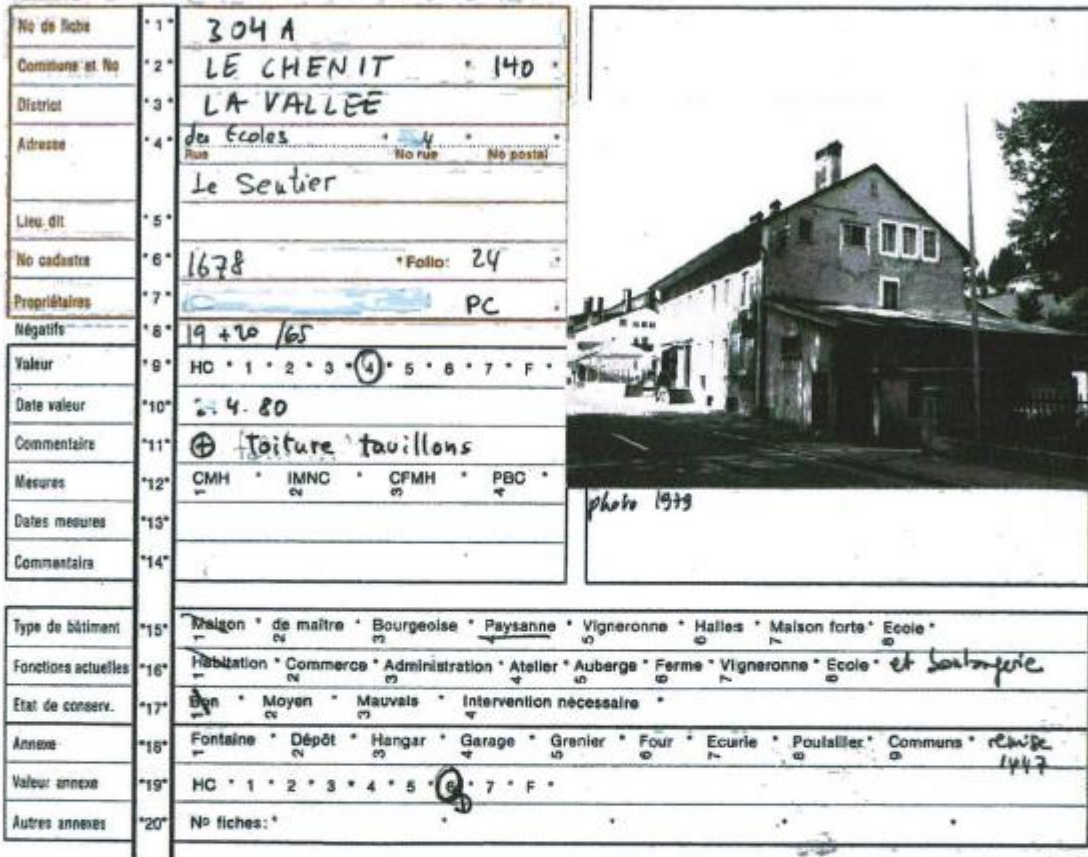 No de fiche *1* 304 A
Commune et No *2* LE CHENIT * 140 *
District *3* LA VALLEE
Adresse *4* des Ecoles * 4 * *
Rue No rue No postal
Le Sentier
Lieu dit *5*
No cadastre *6* 1678 * Folio: 24 *
Propriétaires *7* PC *
Négatifs *8* 19 + 20 /65
Valeur *9* HC * 1 * 2 * 3 * 4 * 5 * 6 * 7 * F *
Date valeur *10* 4.80
Commentaire *11* ⊕ toiture tavillons
Mesures *12* CMH * IMNC * CFMH * PBC *
1 2 3 4
Dates mesures *13*
Commentaire *14*
photo 1979
Type de bâtiment *15* Maison * de maître * Bourgeoise * Paysanne * Vigneronne * Halles * Maison forte * Ecole *
1 2 3 4 5 6 7 8
Fonctions actuelles *16* Habitation * Commerce * Administration * Atelier * Auberge * Ferme * Vigneronne * Ecole * et boulangerie
1 2 3 4 5 6 7 8
Etat de conserv. *17* Bon * Moyen * Mauvais * Intervention nécessaire *
1 2 3 4
Annexe *18* Fontaine * Dépôt * Hangar * Garage * Grenier * Four * Ecurie * Poulailler * Communs * remise
1 2 3 4 5 6 7 8 9 1447
Valeur annexe *19* HC * 1 * 2 * 3 * 4 * 5 * 6 * 7 * F *
⊕
Autres annexes *20* No fiches: * * * * *